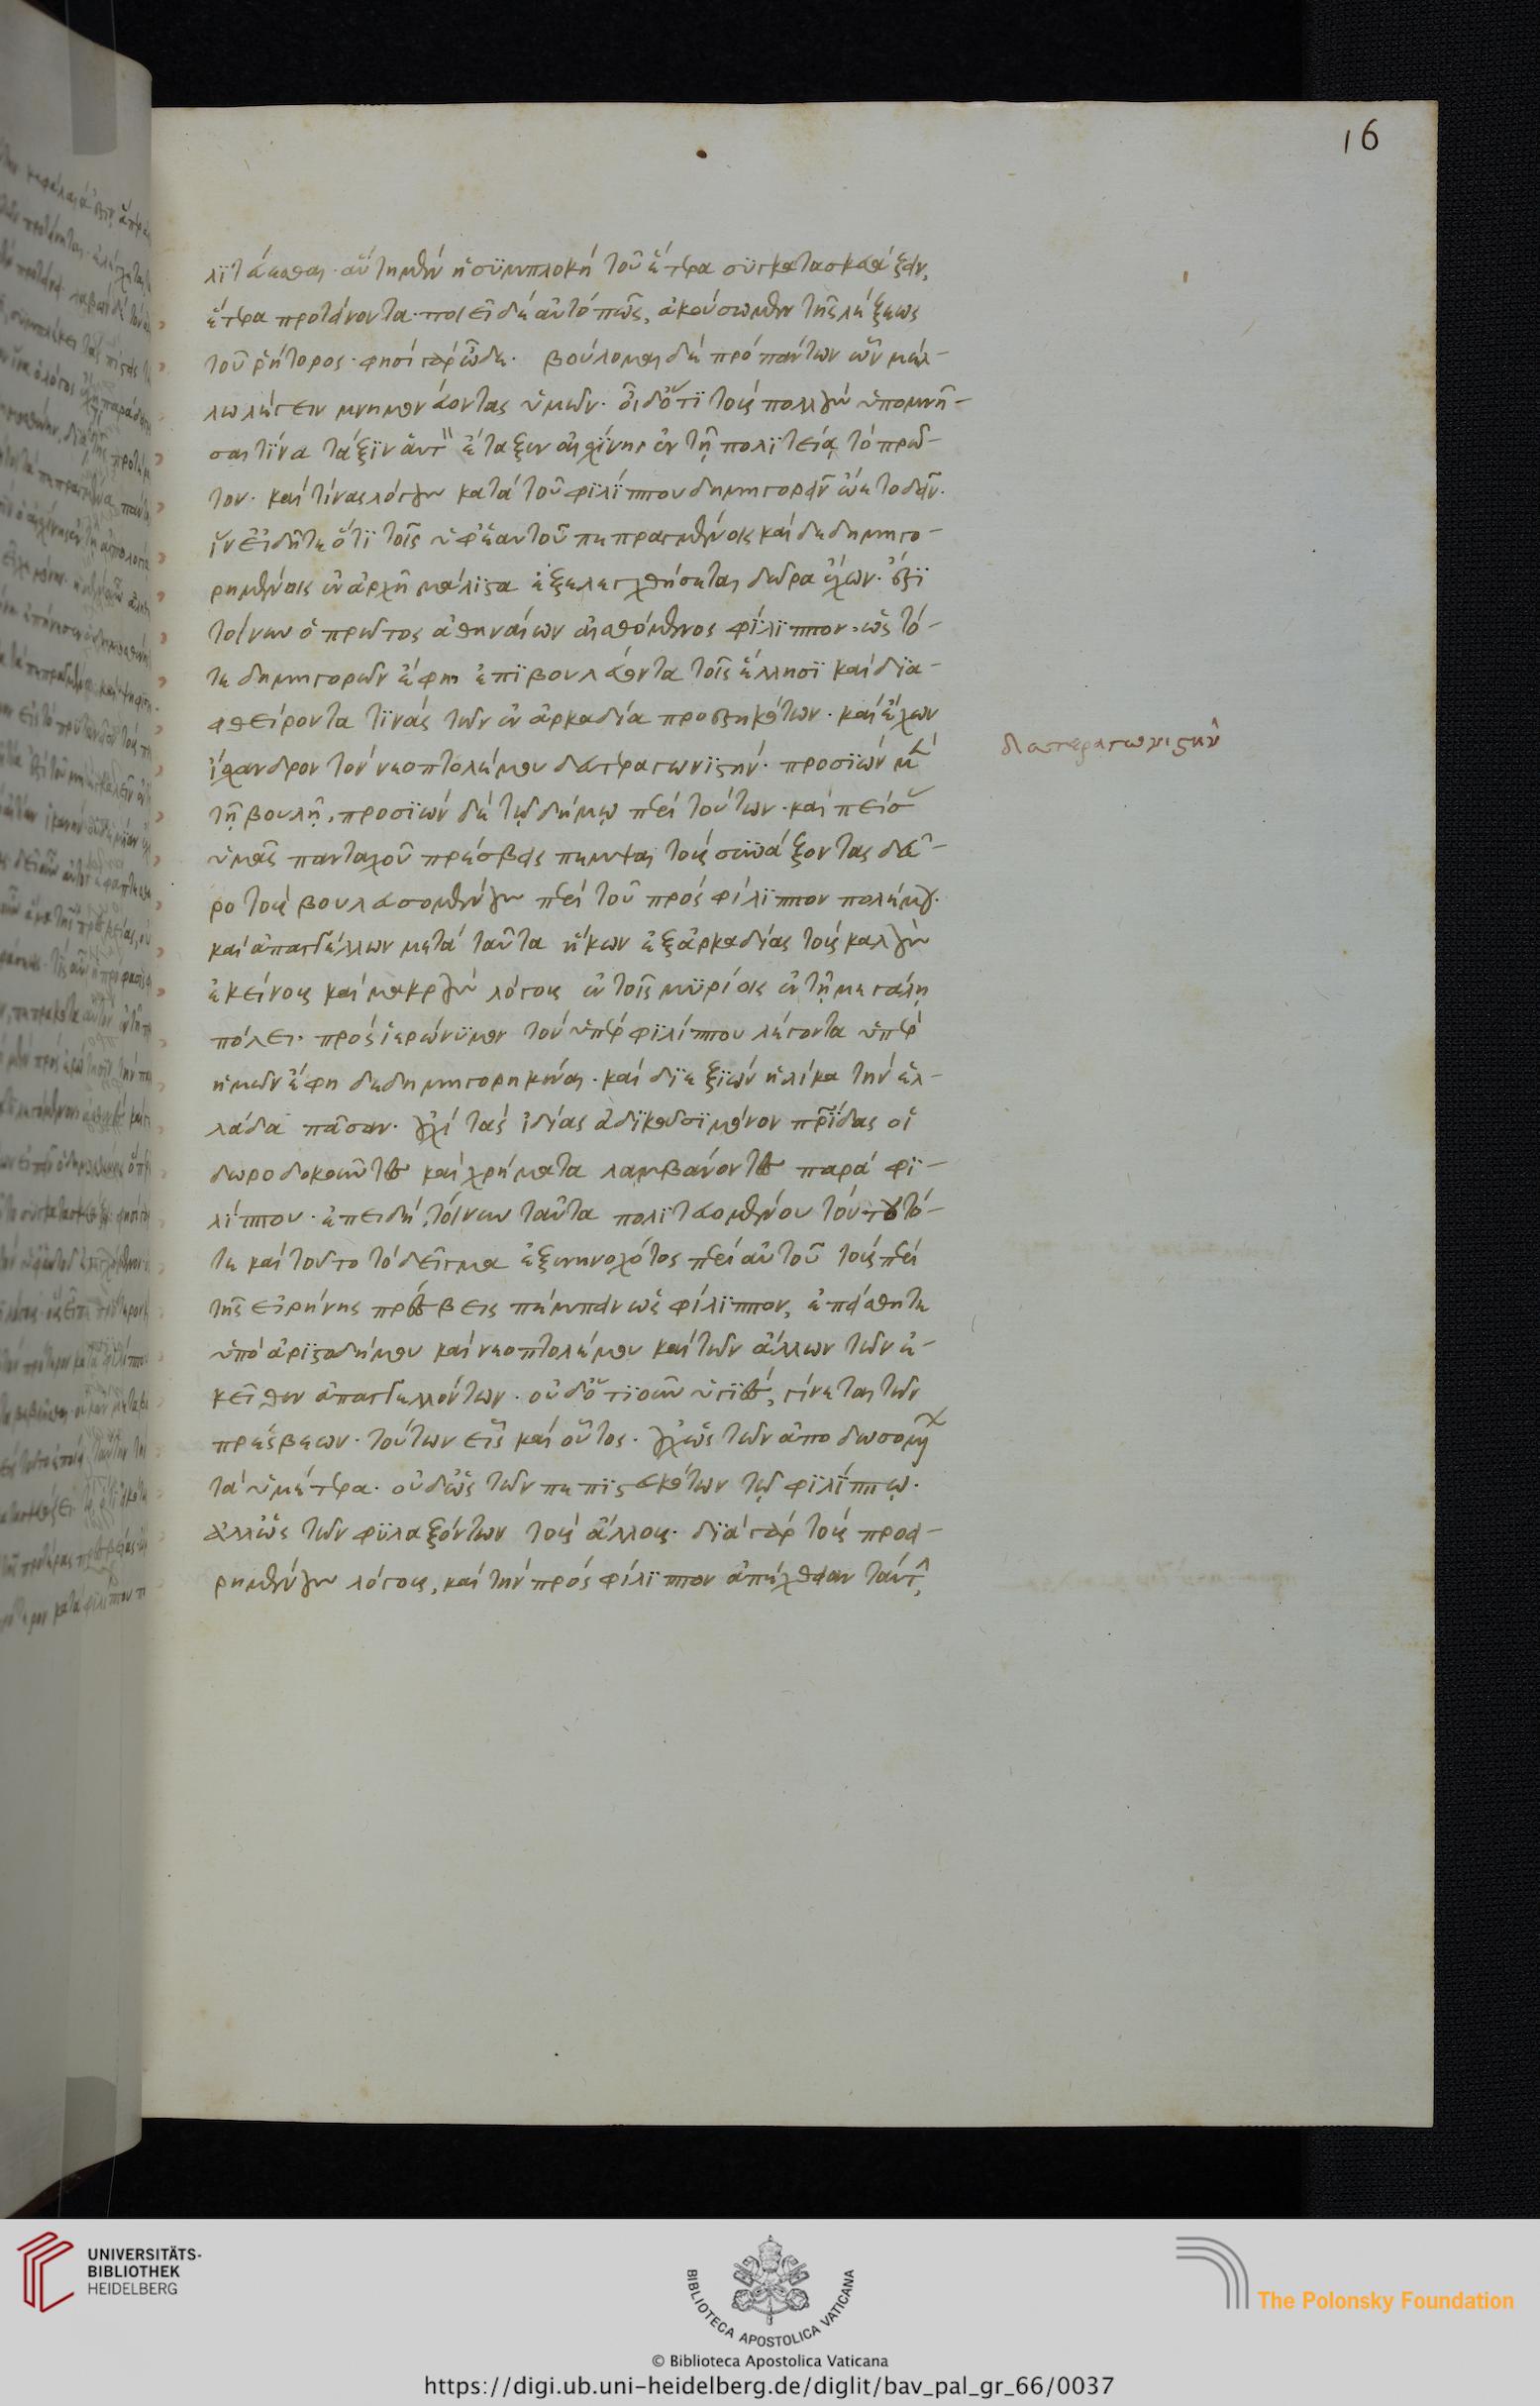 16
λϊτεύεσθαι· αὕτη μὲν ἡ συμπλοκὴ τοῦ ἕτερα συγκατασκευάζειν,
ἕτερα προτείνοντα· ποιεῖ δὲ αὐτὸ πῶς, ἀκούσωμεν τῆς λέξεως
τοῦ ῥήτορος· φησὶ γὰρ ὧδε· βούλομαι δὲ πρὸ πάντων ὧν μέλ-
λω λέγειν μνημονεύοντας ὑμῶν· οἶδ' ὅτι τοὺς πολλοὺς ὑπομνῆ-
σαι τίνα τάξιν ἑαυτ ἔταξεν αἰσχίνης ἐν τῇ πολιτείᾳ τὸ πρῶ-
τον· καὶ τίνας λόγους κατὰ τοῦ φιλίππου δημηγορεῖν ᾤετο δεῖν·
ἵν' εἰδῆτε ὅτι τοῖς ὑφ' ἑαυτοῦ πεπραγμένοις καὶ δεδημηγο-
ρημένοις ἐν ἀρχῇ μάλιστα ἐξελεγχθήσεται δῶρα ἔχων· ἔστι
τοίνυν ὁ πρῶτος ἀθηναίων αἰσθόμενος φίλιππον· ὡς τό-
τε δημηγορῶν ἔφη ἐπιβουλεύοντα τοῖς ἕλλησι καὶ δια-
φθείροντα τινὰς τῶν ἐν ἀρκαδία προεστηκότων· καὶ ἔχων
ἴσχανδρον τὸν νεοπτολέμου δευτεραγωνιστήν· προσιὼν μὲν
τῇ βουλῇ, προσιὼν δὲ τῷ δήμῳ περὶ τούτων· καὶ πείσ
ὑμᾶς πανταχοῦ πρέσβεις πέμψαι τοὺς συνάξοντας δεῦ-
ρο τοὺς βουλευσομένους περὶ τοῦ πρὸς φίλιππον πολέμου·
καὶ ἀπαγγέλλων μετὰ ταῦτα ἥκων ἐξ ἀρκαδίας τοὺς καλοὺς
ἐκείνους καὶ μακροὺς λόγους ἐν τοῖς μυρίοις ἐν τῇ μεγάλῃ
πόλει· πρὸς ἱερώνυμον τὸν ὑπὲρ φιλίππου λέγοντα ὑπὲρ
ἡμῶν ἔφη δεδημηγορηκέναι· καὶ διεξιὼν ἡλίκα τὴν ἑλ-
λάδα πᾶσαν· οὐχὶ τὰς ἰδίας ἀδικοῦσι μόνον πρίδας οἱ
δωροδοκοῦντες καὶ χρήματα λαμβάνοντες παρὰ φι-
λίππου· ἐπειδὴ τοίνυν ταῦτα πολιτευομένου τούτου τό-
τε καὶ τοῦτο τὸ δεῖγμα ἐξενηνοχότος περὶ αὐτοῦ τοὺς περὶ
τῆς εἰρήνης πρέσβεις πέμπειν ὡς φίλιππον, ἐπείσθητε
ὑπὸ ἀριστοδήμου καὶ νεοπτολέμου καὶ τῶν ἄλλων τῶν ἐ-
κεῖθεν ἀπαγγελλόντων· οὐδ' ὁτιοῦν ὑγιές, γίνεται τῶν
πρέσβεων· τούτων εἷς καὶ οὗτος· οὐχ ὡς τῶν ἀποδωσομέ
τὰ ὑμέτερα· οὐδ' ὡς τῶν πεπιστευκότων τῷ φιλίππῳ·
ἀλλ' ὡς τῶν φυλαξόντων τοὺς ἄλλους· διὰ γὰρ τοὺς προει-
ρημένους λόγους, καὶ τὴν πρὸς φίλιππον ἀπέχθειαν ταύτ
δευτεραγωνιστὴν
UNIVERSITÄTS-
BIBLIOTHEK
HEIDELBERG
BIBLIOTECA APOSTOLICA VATICANA
The Polonsky Foundation
© Biblioteca Apostolica Vaticana
https://digi.ub.uni-heidelberg.de/diglit/bav_pal_gr_66/0037